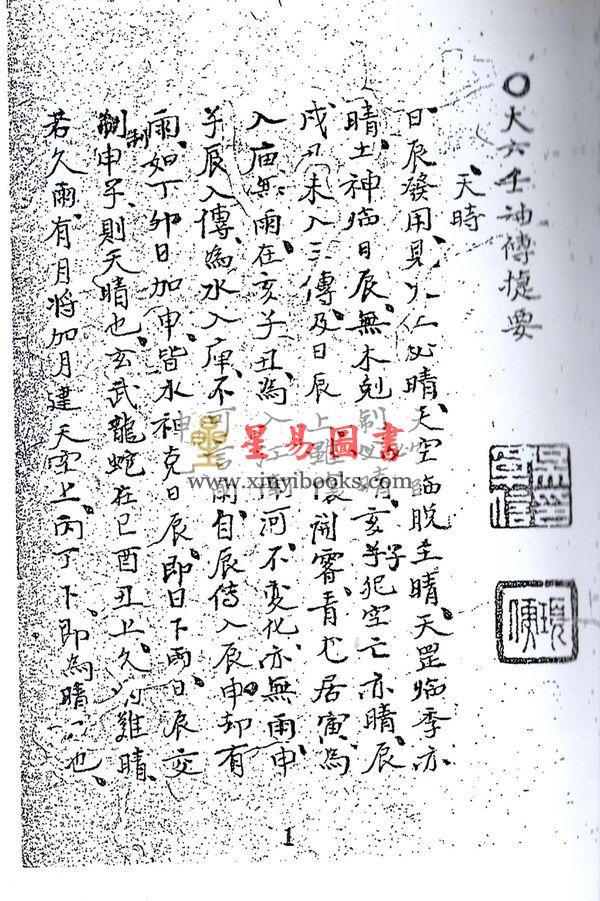 〇大六壬神傳捷要
天時
日辰發用見火仁必晴天空臨脫至晴天罡臨季亦
晴土神臨日辰無木剋制必晴亥子犯空亡亦晴辰
戌丑未入三傳及日辰上雖開霽青龙居寅為
入庙無雨在亥子丑為入江河不變化亦無雨申
子辰入傳為水入庫不可自辰傳入辰申却有
雨如丁卯日加申皆水神克日辰即日下雨日辰交
制申子則天晴也玄武龍蛇在巳酉丑上久難晴
若久雨有月将加月建天空上丙丁下即為晴也
星易圖書
www.xinyibooks.com
1